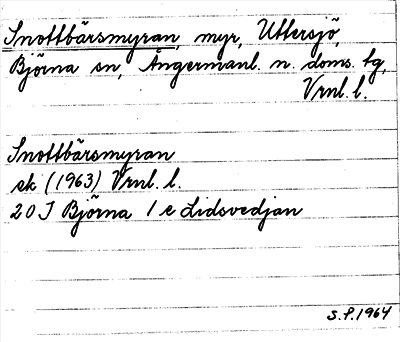 Snottbärsmyran, myr, Uttersjö,
Björna sn, Ångermanl. n. doms. tg,
Vrnl. l.
Snottbärsmyran
ek (1963) Vrnl. l.
20 J Björna 1 e Lidsvedjan
S.P. 1964